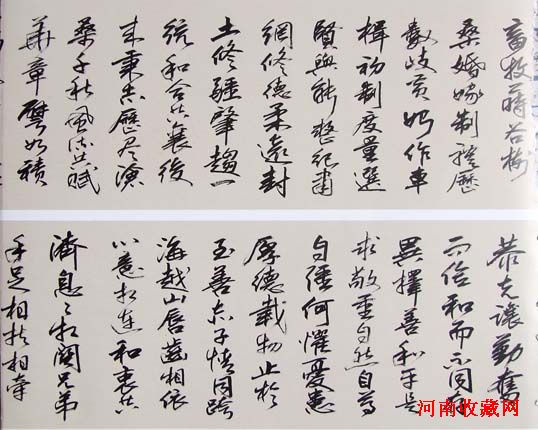 畜牧蒔谷樹
桑婚嫁制禮歷
數岐黃始作車
楫初制度量選
賢與能整紀肅
綱修德柔遠封
土修疆肇趨一
統和合共襄後
來秉志歷盡滄
桑千秋風流共賦
華章譬如積
恭克讓勤奮
而儉和而不同存
異擇善和平是
求敬重自然自尊
自強何懼憂患
厚德載物止於
至善赤子情同跨
海越山唇齒相依
心意相連和衷共
濟息息相關兄弟
手足相扶相牽
河南收藏网